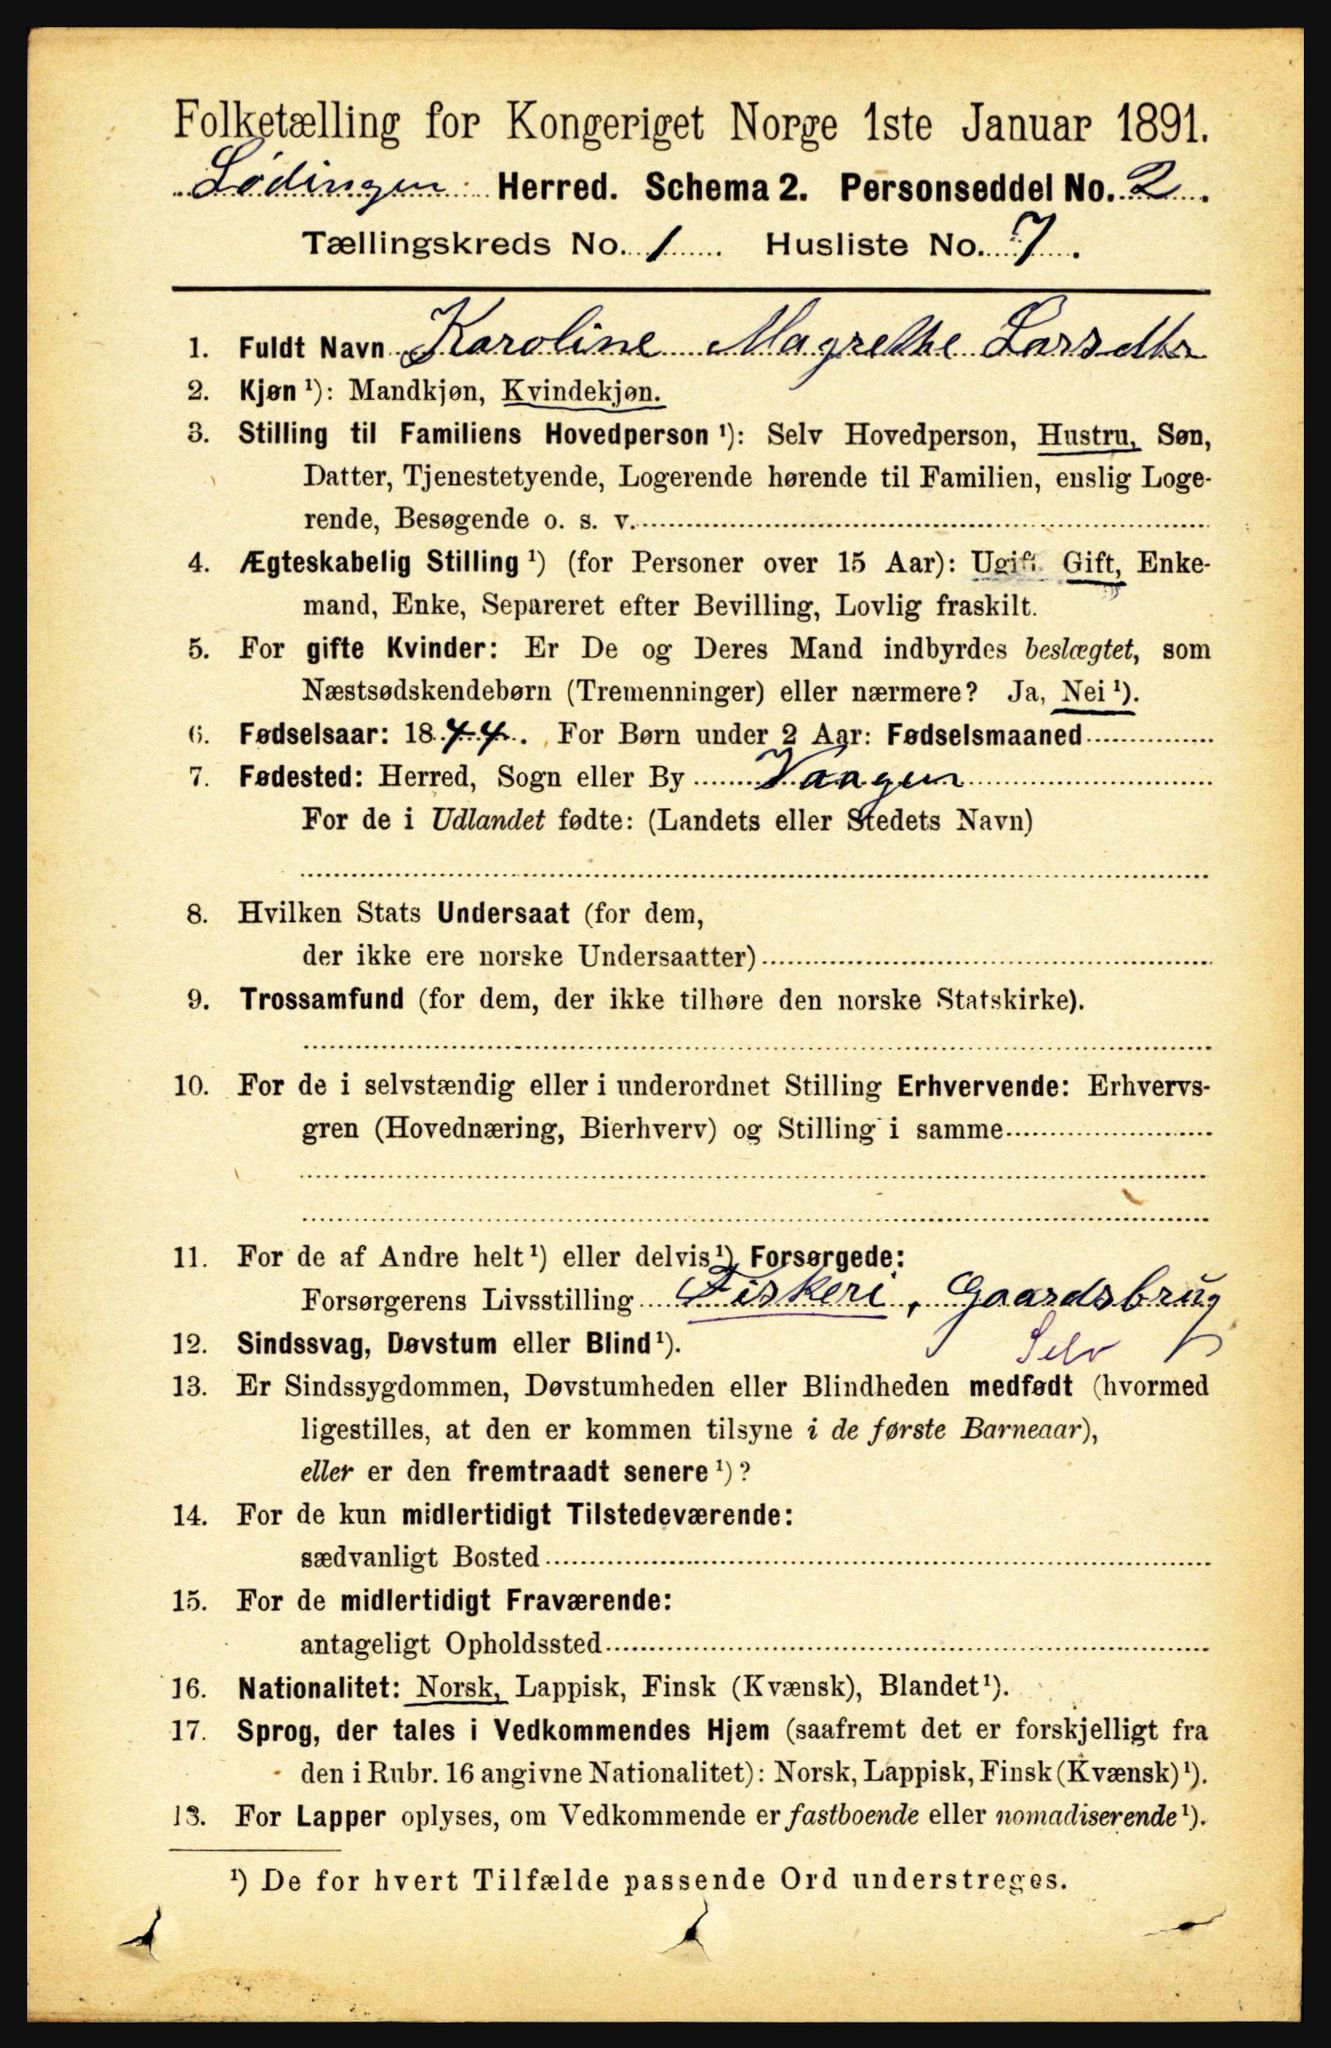 Folketælling for Kongeriget Norge 1ste Januar 1891.
Lødingen Herred. Schema 2. Personseddel No. 2.
Tællingskreds No. 1 Husliste No. 7.
1. Fuldt Navn Karoline Magrethe Larsdtr
2. Kjøn ¹): Mandkjøn, Kvindekjøn.
3. Stilling til Familiens Hovedperson ¹): Selv Hovedperson, Hustru, Søn,
Datter, Tjenestetyende, Logerende hørende til Familien, enslig Loge-
rende, Besøgende o. s. v.
4. Ægteskabelig Stilling ¹) (for Personer over 15 Aar): Ugift Gift, Enke-
mand, Enke, Separeret efter Bevilling, Lovlig fraskilt.
5. For gifte Kvinder: Er De og Deres Mand indbyrdes beslægtet, som
Næstsødskendebørn (Tremenninger) eller nærmere? Ja, Nei ¹).
6. Fødselsaar: 1844. For Børn under 2 Aar: Fødselsmaaned
7. Fødested: Herred, Sogn eller By Vaagen
For de i Udlandet fødte: (Landets eller Stedets Navn)
8. Hvilken Stats Undersaat (for dem,
der ikke ere norske Undersaatter)
9. Trossamfund (for dem, der ikke tilhøre den norske Statskirke).
10. For de i selvstændig eller i underordnet Stilling Erhvervende: Erhvervs-
gren (Hovednæring, Bierhverv) og Stilling i samme
11. For de af Andre helt ¹) eller delvis ¹) Forsørgede:
Forsørgerens Livsstilling Fiskeri, Gaardsbrug
12. Sindssvag, Døvstum eller Blind ¹). Selv
13. Er Sindssygdommen, Døvstumheden eller Blindheden medfødt (hvormed
ligestilles, at den er kommen tilsyne i de første Barneaar),
eller er den fremtraadt senere ¹)?
14. For de kun midlertidigt Tilstedeværende:
sædvanligt Bosted
15. For de midlertidigt Fraværende:
antageligt Opholdssted
16. Nationalitet: Norsk, Lappisk, Finsk (Kvænsk), Blandet ¹).
17. Sprog, der tales i Vedkommendes Hjem (saafremt det er forskjelligt fra
den i Rubr. 16 angivne Nationalitet): Norsk, Lappisk, Finsk (Kvænsk) ¹).
18. For Lapper oplyses, om Vedkommende er fastboende eller nomadiserende ¹).
¹) De for hvert Tilfælde passende Ord understreges.